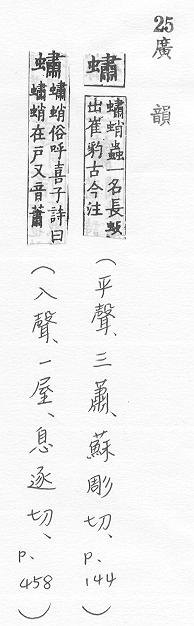 25 廣韻
蠨
蠨蛸蟲一名長蚑
出崔豹古今注
(平聲、三蕭、蘇彫切、p.144)
蠨
蠨蛸俗呼喜子詩曰
蠨蛸在戶又音蕭
(入聲、一屋、息逐切、p.458)